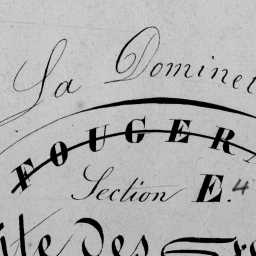 La Dominel
FOUGER
Section E.4
ite des